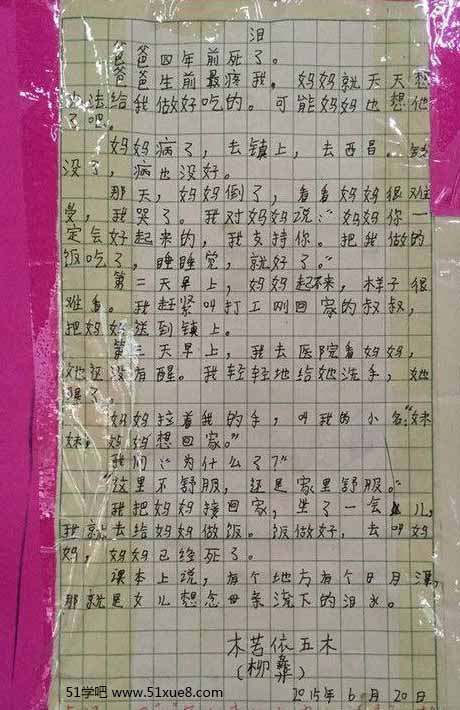 泪
爸爸四年前死了。
爸爸生前最疼我。妈妈就天天想
办法给我做好吃的。可能妈妈也想他
了吧。
妈妈病了，去镇上，去西昌。钱
没了，病也没好。
那天，妈妈倒了，看看妈妈很难
受，我哭了。我对妈妈说：“妈妈你一
定会好起来的，我支持你。把我做的
饭吃了，睡睡觉，就好了。”
第二天早上，妈妈起不来，样子很
难看。我赶紧叫打工刚回家的叔叔，
把妈妈送到镇上。
第三天早上，我去医院看妈妈，
她还没有醒。我轻轻地给她洗手，她
醒了。
妈妈拉着我的手，叫我的小名：“妹
妹，妈妈想回家。”
我问：“为什么了？”
“这里不舒服，还是家里舒服。”
我把妈妈接回家，坐了一会儿，
我就去给妈妈做饭。饭做好，去叫妈
妈，妈妈已经死了。
课本上说，有个地方有个日月潭，
那就是女儿想念母亲流下的泪水。
木苦依五木
（柳彝）
2015年6月20日
51学吧 www.51xue8.com